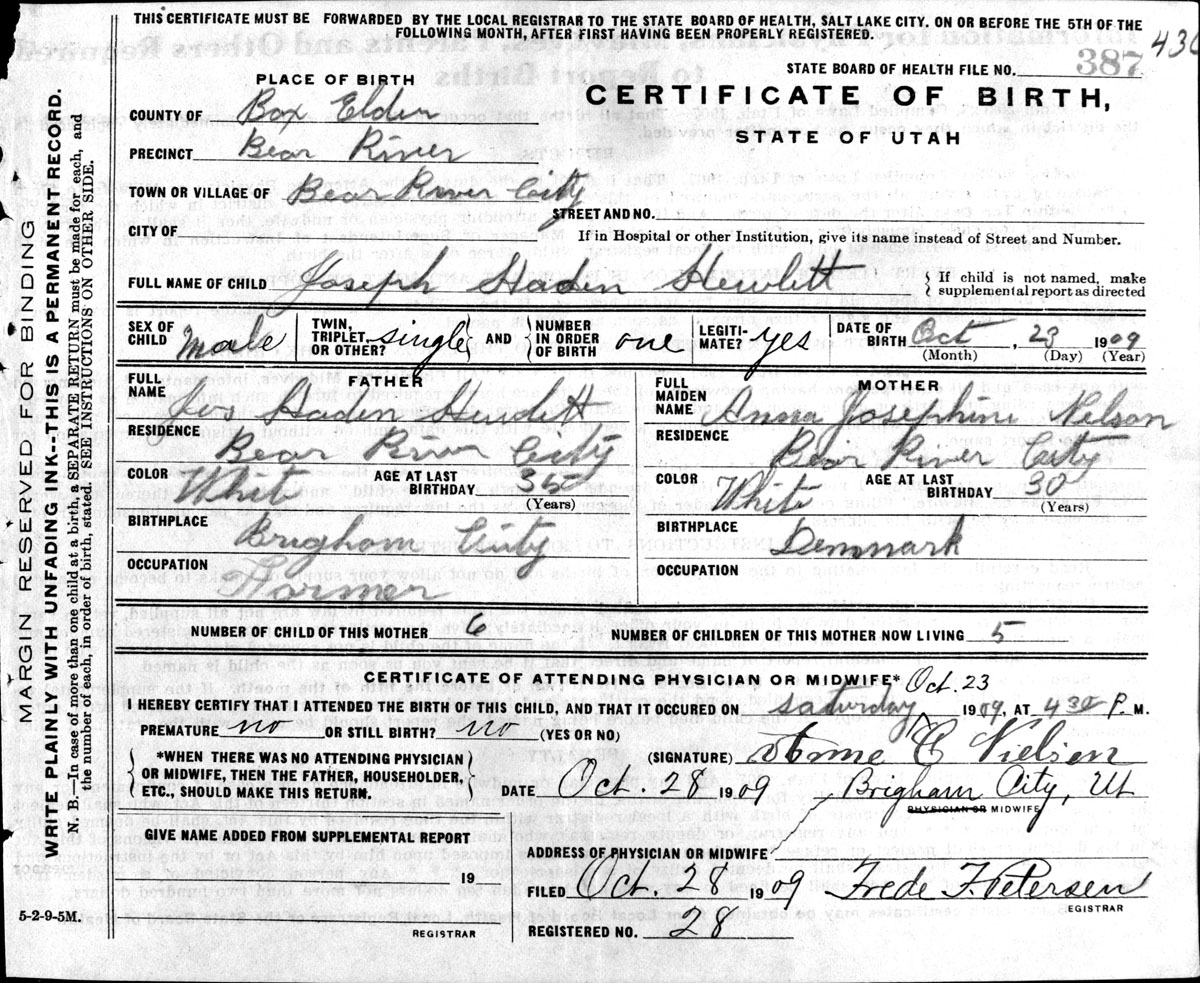 THIS CERTIFICATE MUST BE FORWARDED BY THE LOCAL REGISTRAR TO THE STATE BOARD OF HEALTH, SALT LAKE CITY. ON OR BEFORE THE 5TH OF THE
FOLLOWING MONTH, AFTER FIRST HAVING BEEN PROPERLY REGISTERED.
430
STATE BOARD OF HEALTH FILE NO. 387
PLACE OF BIRTH
CERTIFICATE OF BIRTH,
STATE OF UTAH
COUNTY OF Box Elder
PRECINCT Bear River
TOWN OR VILLAGE OF Bear River City
STREET AND NO.
CITY OF
If in Hospital or other Institution, give its name instead of Street and Number.
FULL NAME OF CHILD Joseph Haden Hewlett
If child is not named, make
supplemental report as directed
SEX OF CHILD Male
TWIN, TRIPLET, OR OTHER? single
AND
NUMBER IN ORDER OF BIRTH one
LEGITI-MATE? yes
DATE OF BIRTH Oct, 23 1909
(Month) (Day) (Year)
FATHER
FULL NAME Jos Haden Hewlett
RESIDENCE Bear River City
COLOR Whit
AGE AT LAST BIRTHDAY 35
(Years)
BIRTHPLACE Brigham City
OCCUPATION Farmer
MOTHER
FULL MAIDEN NAME Anna Josephine Nelson
RESIDENCE Bear River City
COLOR White
AGE AT LAST BIRTHDAY 30
(Years)
BIRTHPLACE Denmark
OCCUPATION
NUMBER OF CHILD OF THIS MOTHER 6
NUMBER OF CHILDREN OF THIS MOTHER NOW LIVING 5
CERTIFICATE OF ATTENDING PHYSICIAN OR MIDWIFE*
Oct. 23
I HEREBY CERTIFY THAT I ATTENDED THE BIRTH OF THIS CHILD, AND THAT IT OCCURED ON Saturday 1909, AT 430 P. M.
PREMATURE no OR STILL BIRTH? no (YES OR NO)
*WHEN THERE WAS NO ATTENDING PHYSICIAN
OR MIDWIFE, THEN THE FATHER, HOUSEHOLDER,
ETC., SHOULD MAKE THIS RETURN.
(SIGNATURE) Anne C Nielsen
DATE Oct. 28 1909 Brigham City, Ut
PHYSICIAN OR MIDWIFE
GIVE NAME ADDED FROM SUPPLEMENTAL REPORT
19
REGISTRAR
ADDRESS OF PHYSICIAN OR MIDWIFE
FILED Oct. 28 1909 Frede F. Petersen
EGISTRAR
REGISTERED NO. 28
5-2-9-5M.
MARGIN RESERVED FOR BINDING
WRITE PLAINLY WITH UNFADING INK--THIS IS A PERMANENT RECORD.
N. B.—In case of more than one child at a birth, a SEPARATE RETURN must be made for each, and
the number of each, in order of birth, stated. SEE INSTRUCTIONS ON OTHER SIDE.